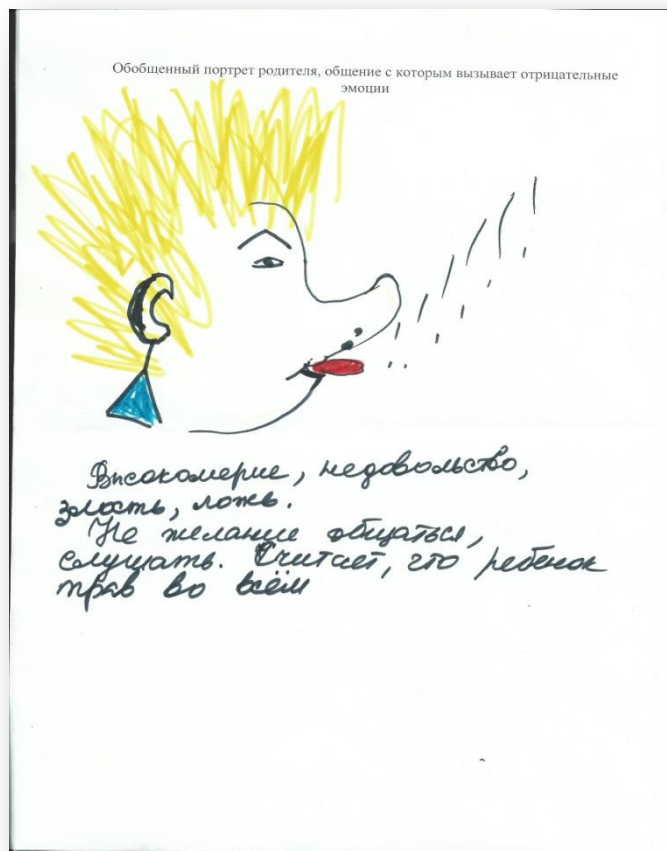 Обобщенный портрет родителя, общение с которым вызывает отрицательные
эмоции
Высокомерие, недовольство,
злость, ложь.
Не желание общаться,
слушать. Считает, что ребенок
прав во всём